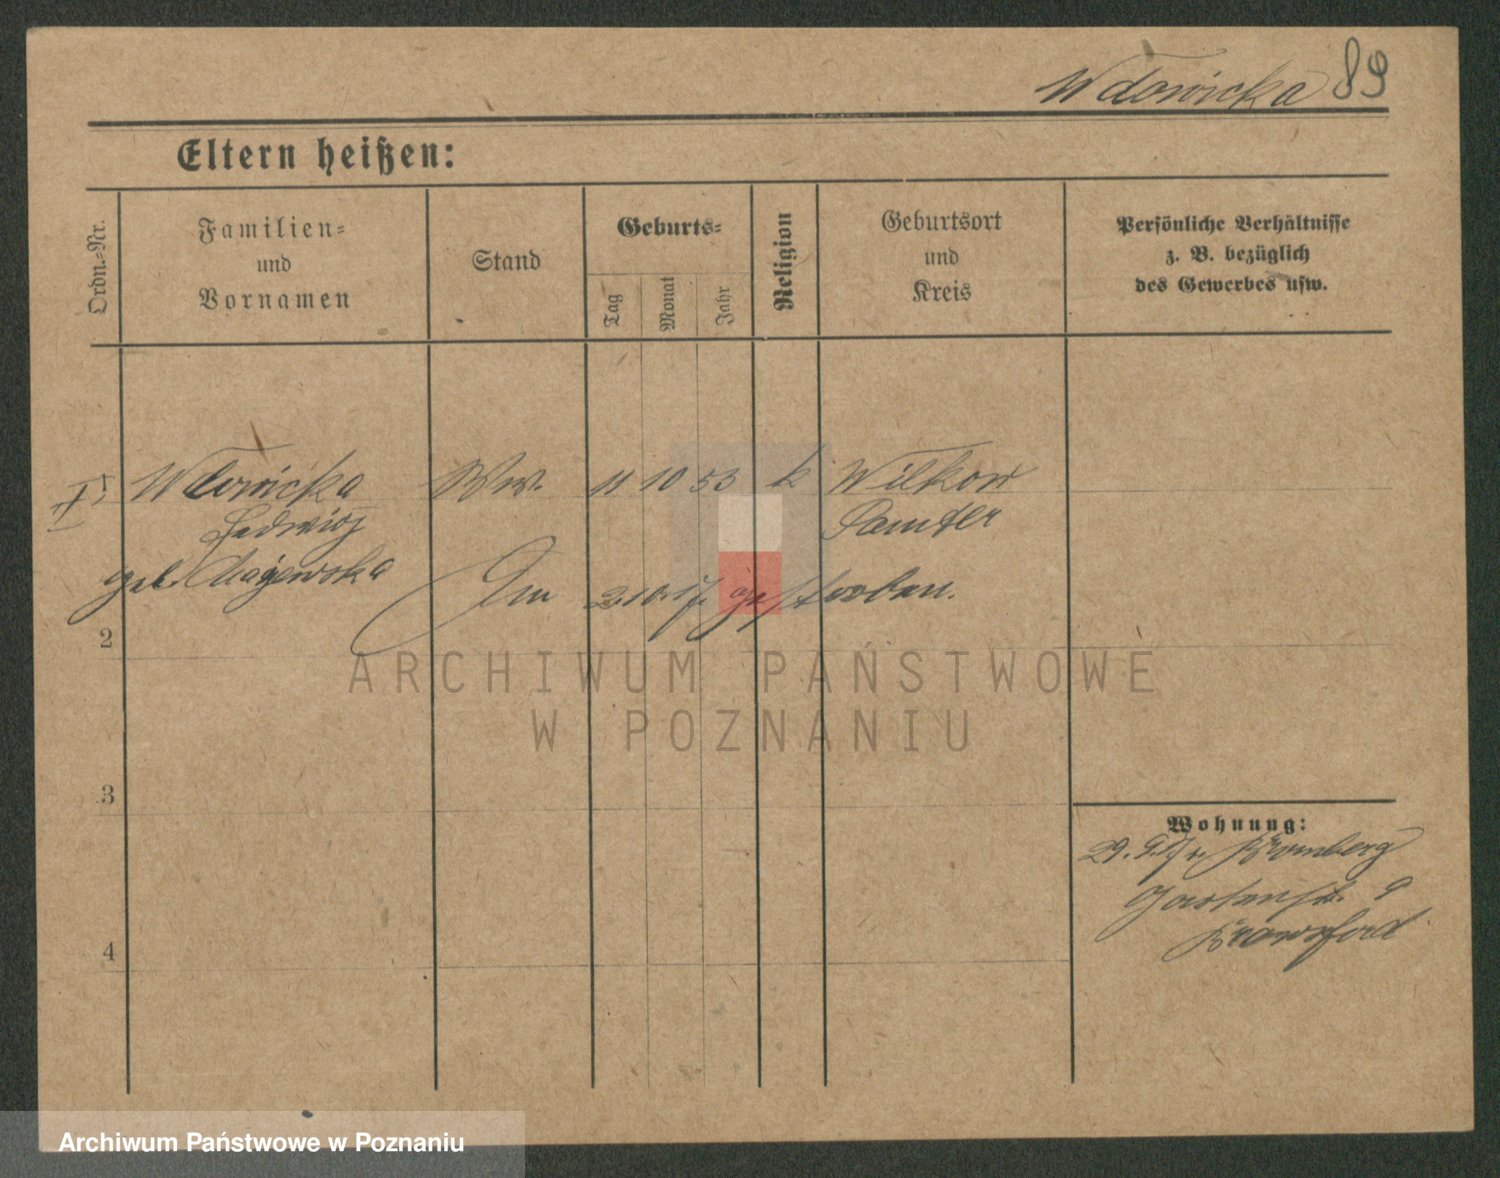 Wdowicka 89
Eltern heißen:
Ordn.-Nr.
Familien-
und
Vornamen
Stand
Geburts-
Tag
Monat
Jahr
Religion
Geburtsort
und
Kreis
Persönliche Verhältnisse
z. B. bezüglich
des Gewerbes usw.
Wdowicka Ww. 11 10 53 k
Samter
geb. Majewska
Am 2.10.17 gestorben.
2
3
4
Wohnung:
29. 9. 17 v. Bromberg
9
ARCHIWUM PAŃSTWOWE
W POZNANIU
Archiwum Państwowe w Poznaniu